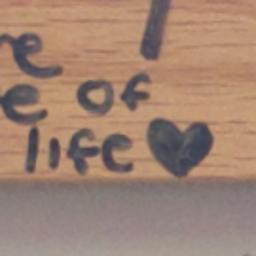 e of
life ♥